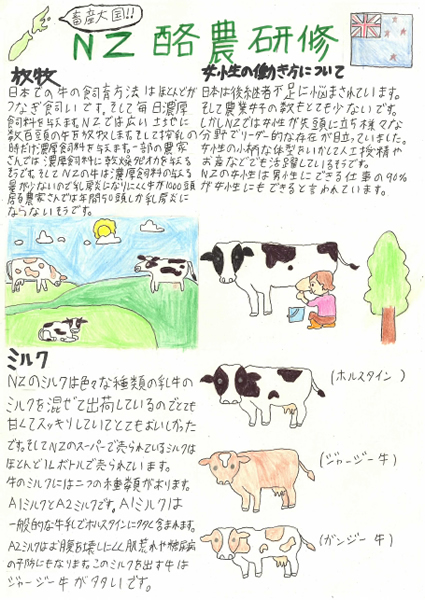 畜産大国!!
NZ 酪農研修
放牧
日本での牛の飼育方法はほとんどが
つなぎ飼いです。そして毎日濃厚
飼料を与えます。NZでは広い土地に
数百頭の牛を放牧します。そして搾乳の
時だけ濃厚飼料を与えます。一部の農家
さんでは濃厚飼料に乾燥タピオカを与える
そうです。そしてNZの牛は濃厚飼料の与える
量が少ないので乳房炎になりにくく牛が1000頭
居る農家さんでは年間50頭しか乳房炎に
ならないそうです。
女性の働き方について
日本は後継者不足に悩まされています。
そして農業女子の数もとても少ないです。
しかしNZでは女性が先頭に立ち様々な
分野でリーダー的な存在が目立っていました。
女性の小柄な体型をいかして人工授精や
お産などでも活躍しているそうです。
NZの女性は男性にできる仕事の90%
が女性にもできると言われています。
ミルク
NZのミルクは色々な種類の乳牛の
ミルクを混ぜて出荷しているのでとても
甘くてスッキリしていてとてもおいしかった
です。そしてNZのスーパーで売られているミルクは
ほとんど1Lボトルで売られています。
牛のミルクには二つの種類があります。
A1ミルクとA2ミルクです。A1ミルクは
一般的な牛乳でホルスタインに多く含まれます。
A2ミルクはお腹を壊しにくく肌荒れや糖尿病
の予防にもなります。このミルクを出す牛は
ジャージー牛が多いです。
(ホルスタイン)
(ジャージー牛)
(ガンジー牛)